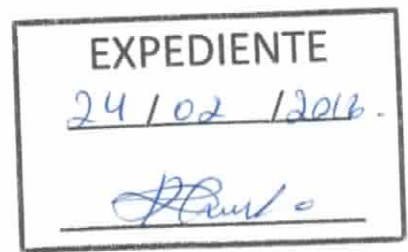 EXPEDIENTE
24 / 02 / 2016.